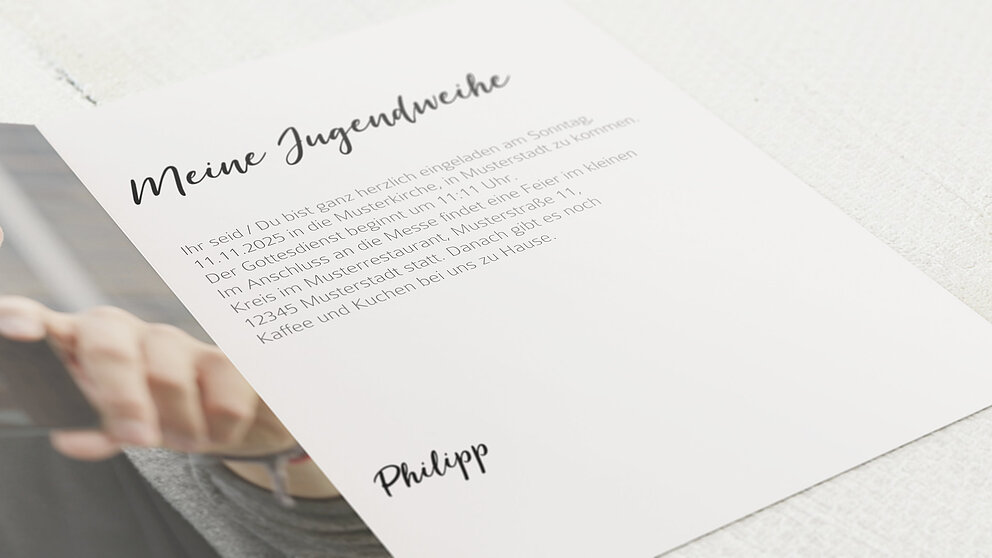 Meine Jugendweihe
Ihr seid / Du bist ganz herzlich eingeladen am Sonntag,
11.11.2025 in die Musterkirche, in Musterstadt zu kommen.
Der Gottesdienst beginnt um 11:11 Uhr.
Im Anschluss an die Messe findet eine Feier im kleinen
Kreis im Musterrestaurant, Musterstraße 11,
12345 Musterstadt statt. Danach gibt es noch
Kaffee und Kuchen bei uns zu Hause.
Philipp